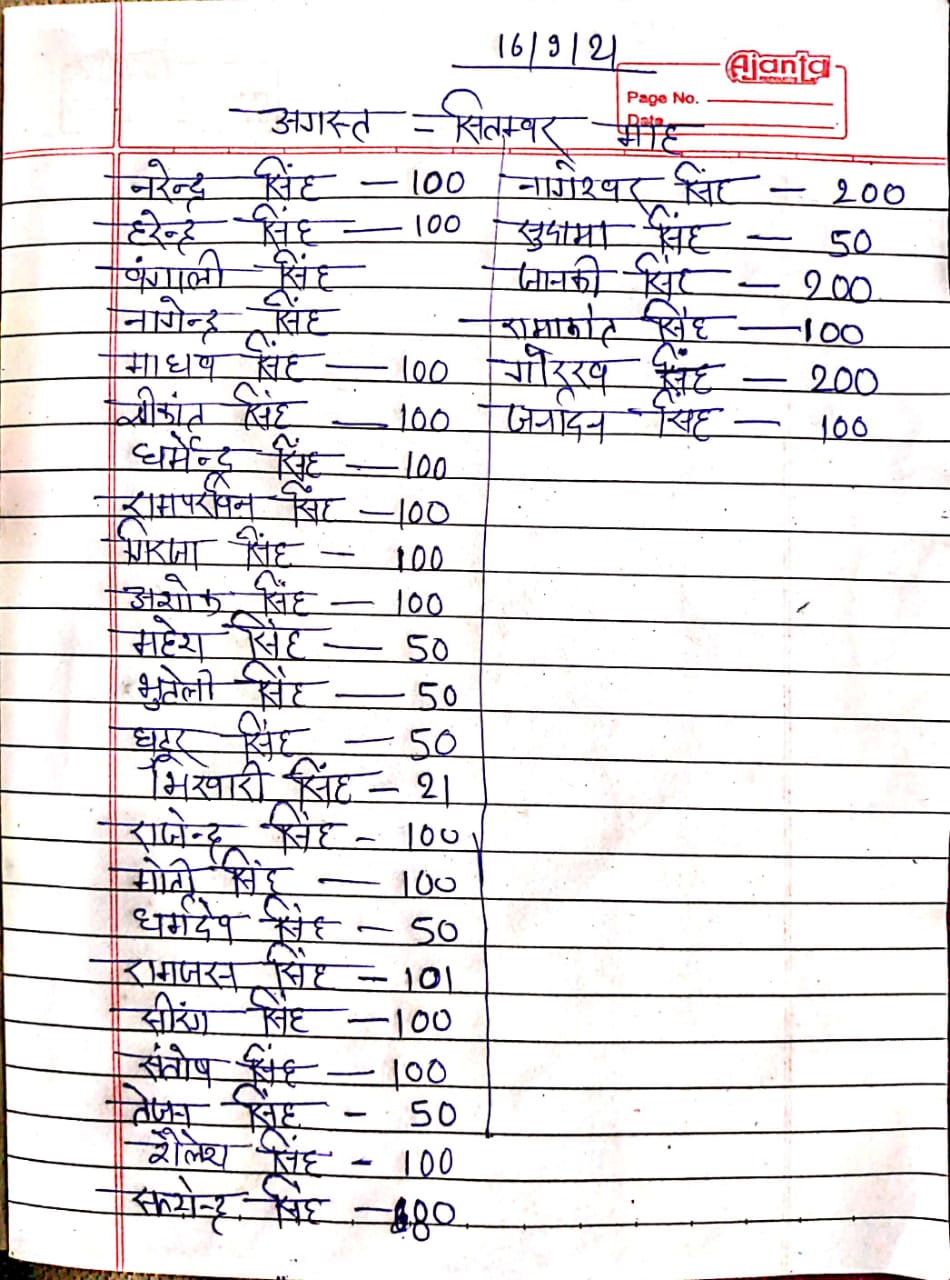 16/9/21
Ajanta
Page No.
Date
अगस्त - सितम्बर माह
नरेन्द्र सिंह - 100
हरेन्द्र सिंह - 100
बंगाली सिंह
नागेन्द्र सिंह
माधव सिंह - 100
श्रीकांत सिंह - 100
धर्मेन्द्र सिंह - 100
सिंह - 100
गिरजा सिंह - 100
अशोक सिंह - 100
महेश सिंह - 50
भुटेली सिंह - 50
सिंह - 50
भिखारी सिंह - 21
राजेन्द्र सिंह - 100
मोती सिंह - 100
धर्मदेव सिंह - 50
सिंह - 101
सीरंग सिंह - 100
संतोष सिंह - 100
तेजन सिंह - 50
शैलेश सिंह - 100
सिंह -
नागेश्वर सिंह - 200
सुदामा सिंह - 50
जानकी सिंह - 200
रामाकांत सिंह - 100
गोरख सिंह - 200
जर्नादन सिंह - 100